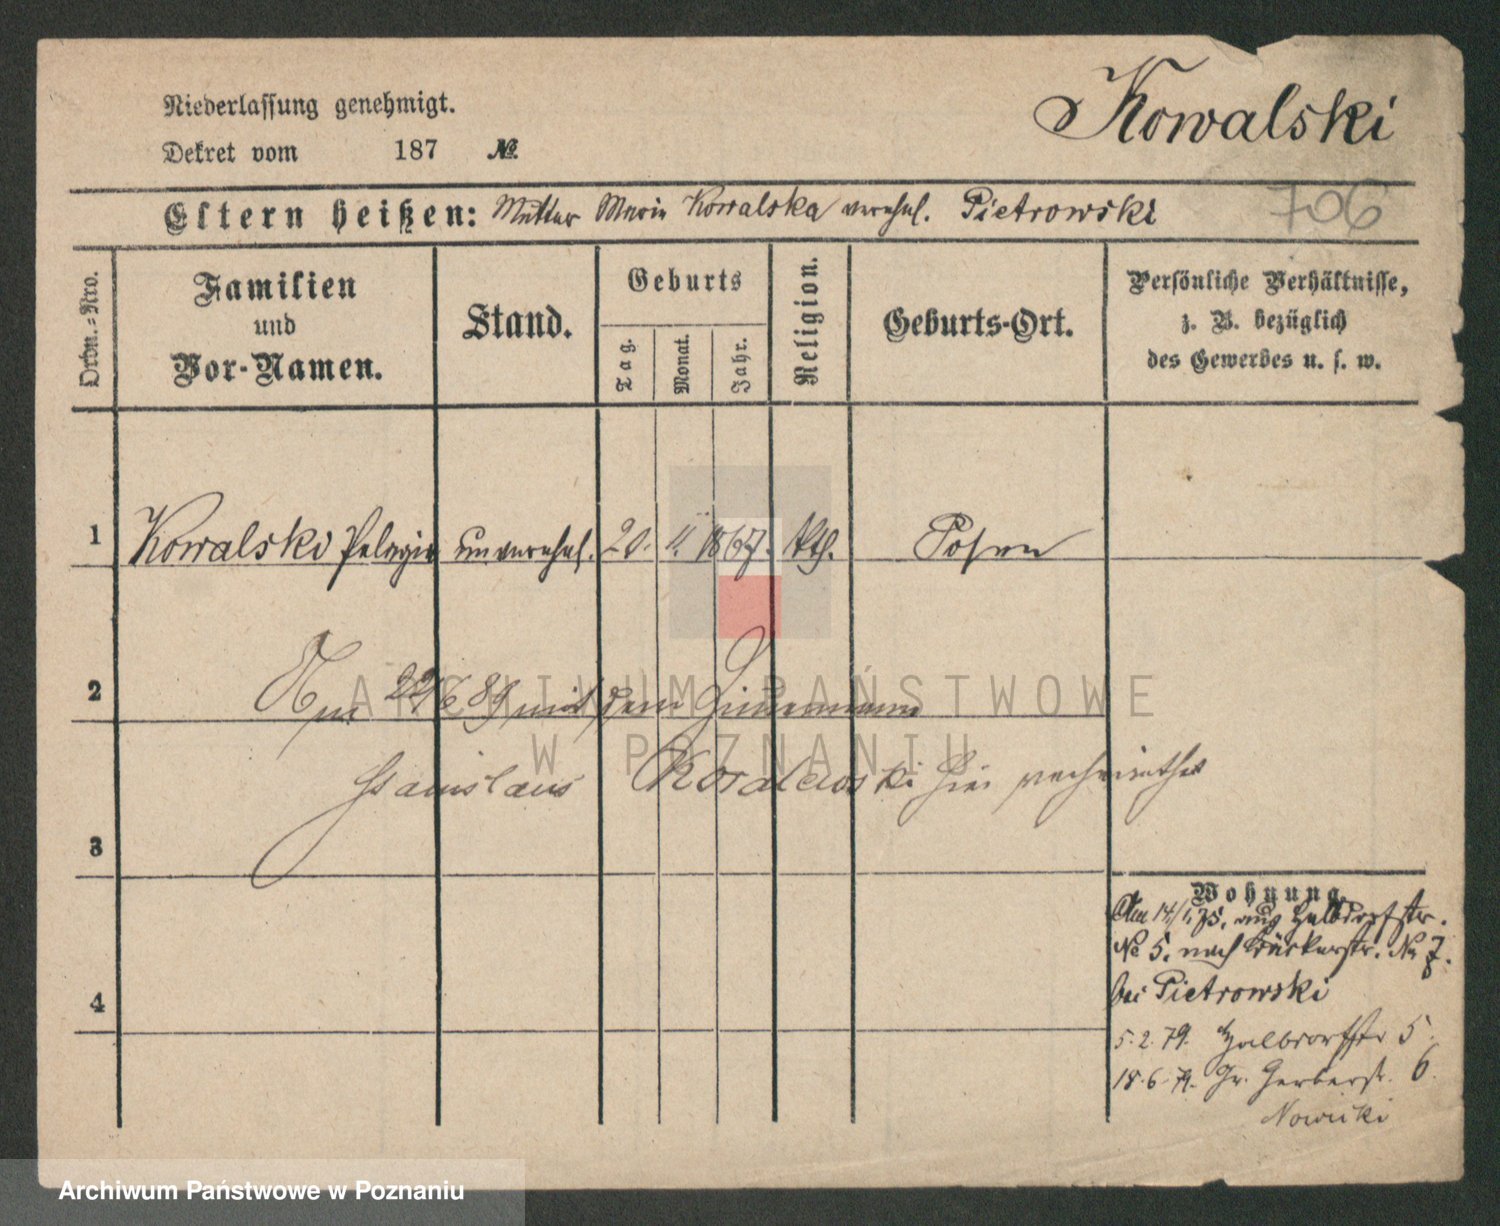 Niederlassung genehmigt.
Kowalski
Dekret vom 187 №
Eltern heißen: Mutter Marie Kowalska verehel. Pietrowski
706
Ordn.-Nro.
Familien
und
Vor-Namen.
Stand.
Geburts
Tag.
Monat.
Jahr.
Religion.
Geburts-Ort.
Persönliche Verhältnisse,
z. B. bezüglich
des Gewerbes u. s. w.
1 Kowalski Pelagia unverehel. 20. 11. 1867. kth. Posen
2 Am 22/6 89 mit dem Zimmermann
Stanislaus Kowalewski hier verheirathet
3
Wohnung
Am 14/1. 75. aus Halbdorfstr.
№ 5. nach Bäckerstr. No 7.
bei Pietrowski
4
5.2.79. Halbdorfstr 5.
18.6.79. Gr. Gerberstr. 6.
Nowicki
ARCHIWUM PAŃSTWOWE
W POZNANIU
Archiwum Państwowe w Poznaniu